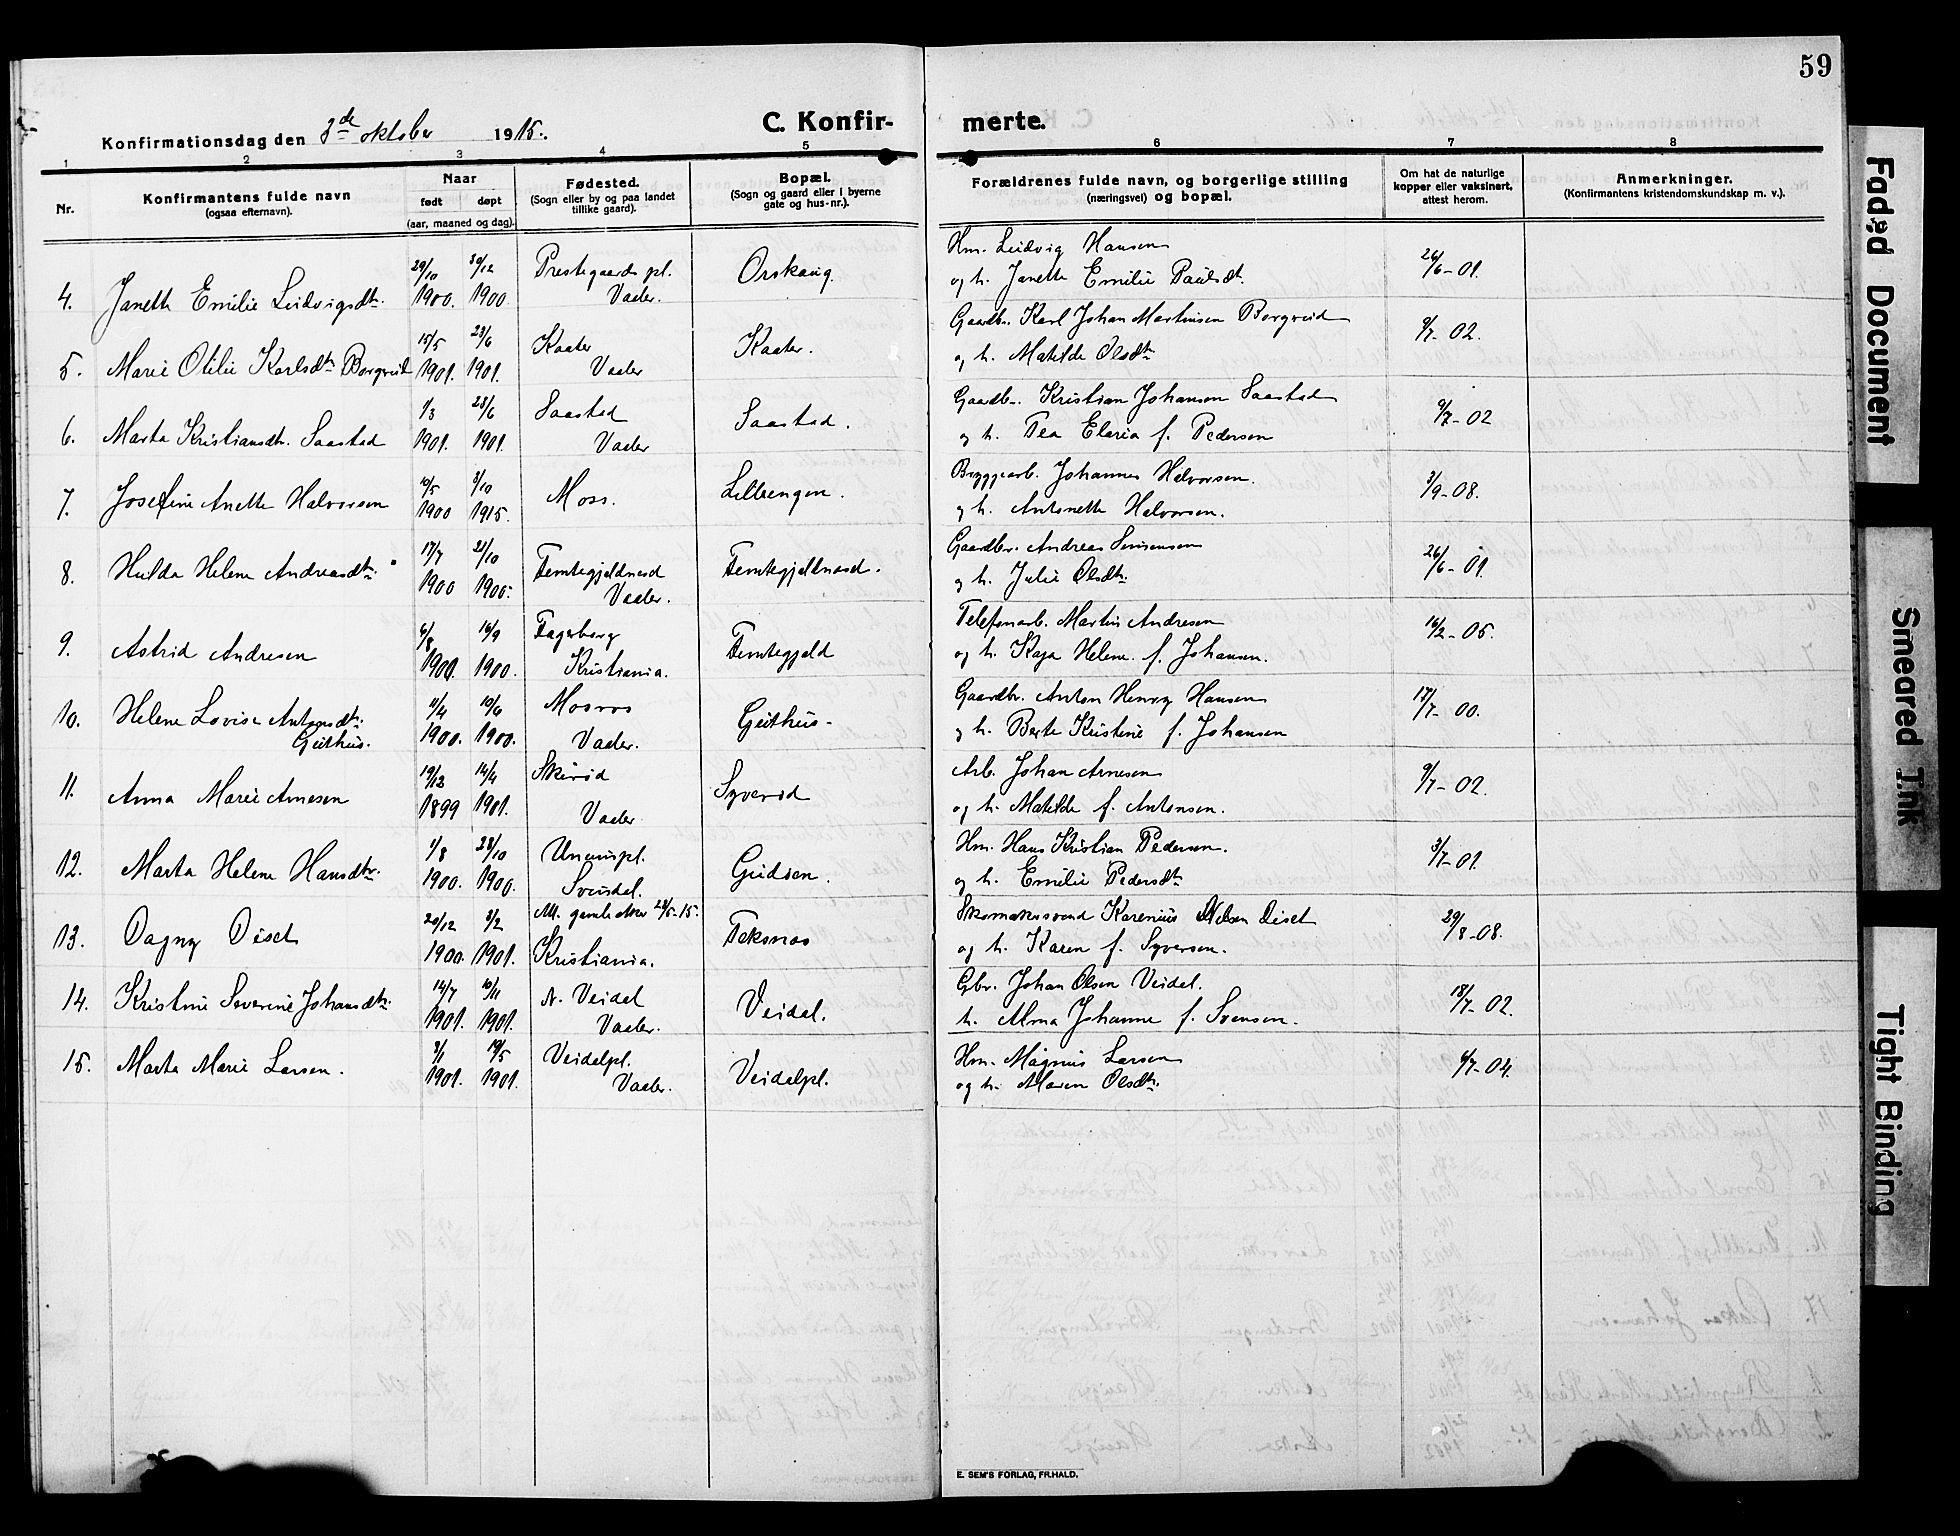 59
Konfirmationsdag den 3de oktober 1915. C. Konfir- merte.
1 2 3 4 5 6 7 8
Nr. Konfirmantens fulde navn (ogsaa efternavn). Naar født døpt (aar, maaned og dag). Fødested. (Sogn eller by og paa landet tillike gaard). Bopæl. (Sogn og gaard eller i byerne gate og hus-nr.). Forældrenes fulde navn, og borgerlige stilling (næringsvei) og bopæl. Om hat de naturlige kopper eller vaksinert, attest herom. Anmerkninger. (Konfirmantens kristendomskundskap m. v.).
29/10 30/12 Prestegaards pl. Orskaug. Hm. Ludvig Hansen 26/6-01.
4. Janette Emilie Ludvigsdtr. 1900. 1900. Vaaler. og h. Janette Emilie Paulsdt.
15/5 23/6 Kaater Kaater. Gaardbr. Karl Johan Martinsen Borgerud 9/7-02.
5. Marie Otilie Karlsdtr Borgerud 1901. 1901. Vaaler og h. Matilde Olsdtr.
1/3 23/6 Saastad Saastad. Gaardb. Kristian Johansen Saastad 9/7-02
6. Marta Kristiansdtr. Saastad 1901. 1901. Vaaler og h. Tea Elaria f. Pedersen
10/5 3/10 Moss. Lilleengen. Bryggearb. Johannes Halvorsen. 3/9-08.
7. Josefine Anette Halvorsen 1900 1915. og h. Antonette Halvorsen.
17/7 21/10 Femtegjeldnesd Femtegjeldnesd. Gaardbr. Andreas Simensen 26/6-01.
8. Hulda Helene Andreasdtr. 1900 1900. Vaaler. og h. Julie Olsdtr.
6/8 16/9 Fagerborg Femtegjeld Telefonarb. Martin Andresen 16/2-05.
9. Astrid Andresen 1900. 1900. Kristiania. og h. Kaja Helene f. Johansen.
11/4 10/6 Mosros Guthus- Gaardbr. Anton Henry Hansen 17/7-00.
10. Helene Lovise Antonsdtr. Guthus. 1900. 1900. Vaaler. og h. Berte Kristine f. Johansen
19/12 14/4 Skirød Syverød Arb. Johan Arnesen 9/7-02.
11. Anna Marie Arnesen 1899 1901. Vaaler og h. Matilde f. Antonsen.
1/8 28/10 Unumspl. Gudsen. Hm. Hans Kristian Pedersen. 3/7-01.
12. Marta Helene Hansdtr. 1900. 1900. Svindal. og h. Emilie Pedersdtr
20/12 3/2 Att. gamle Aker 28/5-15. Teksnæs Skomakersvend Karenius Nilsen Diset 29/8-08.
13. Dagny Diset 1900. 1901. Kristiania. og h. Karen f. Syversen.
14/7 10/11 N. Veidal Veidal. Gbr. Johan Olsen Veidal. 18/7-02.
14. Kristine Severine Johansdtr. 1901. 1901. Vaaler. h. Alma Johanne f. Svensen.
3/1 19/5 Veidalpl. Veidalpl. Hm. Magnus Larsen 6/7-04.
15. Marta Marie Larsen. 1901. 1901. Vaaler. og h. Maren Olsdtr.
E. SEM'S FORLAG, FR.HALD.
Faded Document
Smeared Ink
Tight Binding